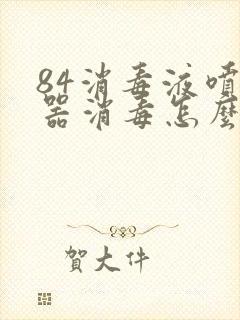 84消毒液噴
器消毒怎麼
賀大件